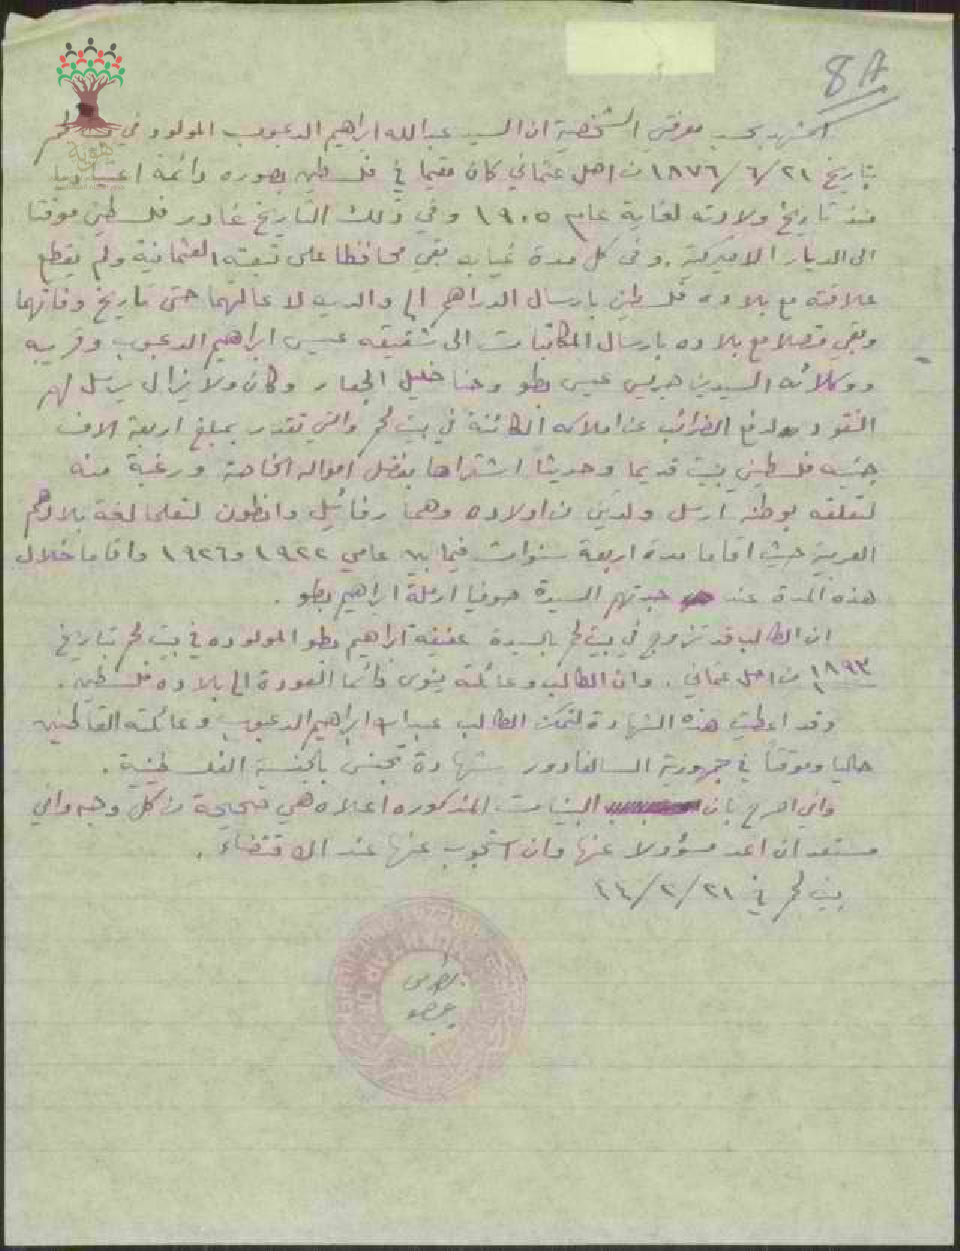 8A
اشهد بحسب معرفتي الشخصية ان السيد عبدالله ابراهيم الدعبوب المولود في لحم
هوية
بتاريخ ٢١/٦/١٨٧٦ من اهل عثماني كان مقيما في فلسطين بصوره دائمة اعتياديا
منذ تاريخ ولادته لغاية عام ١٩٠٥ وفي ذلك التاريخ غادر فلسطين موقتا
الى الديار الاميركية. وفي كل مدة غيابه بقي محافظا على تبعته العثمانية ولم يقطع
علاقته مع بلاده فلسطين بارسال الدراهم الى والديه لاعالتهما حتى تاريخ وفاتهما
وبقي متصلا مع بلاده بارسال المكاتبات الى شقيقه عيسى ابراهيم الدعبوب وقريبه
ووكلائه السيدين جريس عيسى بطو وحنا خليل الجعار وكان ولا يزال يرسل لهم
النقود لدفع الضرائب عن املاكه الكائنة في بيت لحم والتي تقدر بمبلغ اربعة الاف
جنيه فلسطيني بيت قديما وحديثا اشتراها بفضل امواله الخاصة ورغبة منه
لتعلقه بوطنه ارسل ولدين من اولاده وهما رفائيل وانطون لتعلما لغة بلادهم
العربية حيث اقاما مدة اربعة سنوات فيما بين عامي ١٩٢٢ و١٩٢٦ واقاما خلال
هذه المدة عند جدتهم السيدة صوفيا ارملة ابراهيم بطو.
ان الطالب قد تزوج في بيت لحم بالسيدة عفيفة ابراهيم بطو المولوده في بيت لحم بتاريخ
١٨٩٣ من اهل عثماني. وان الطالب وعائلته ينوى دائما العودة الى بلاده فلسطين.
وقد اعطيت هذه الشهادة لتمكن الطالب عبدالله ابراهيم الدعبوب وعائلته القاطنين
حاليا وموقتاً في جمهورية السالفادور شهادة تجنس بالجنسية الفلسطينية.
واني اصرح بان البينات المذكوره اعلاه هي صحيحة من كل وجه واني
مستعد ان اعد مسؤولا عنها وان استجوب عنها عند الاقتضاء.
بيت لحم في ٢١/٢/٣٤